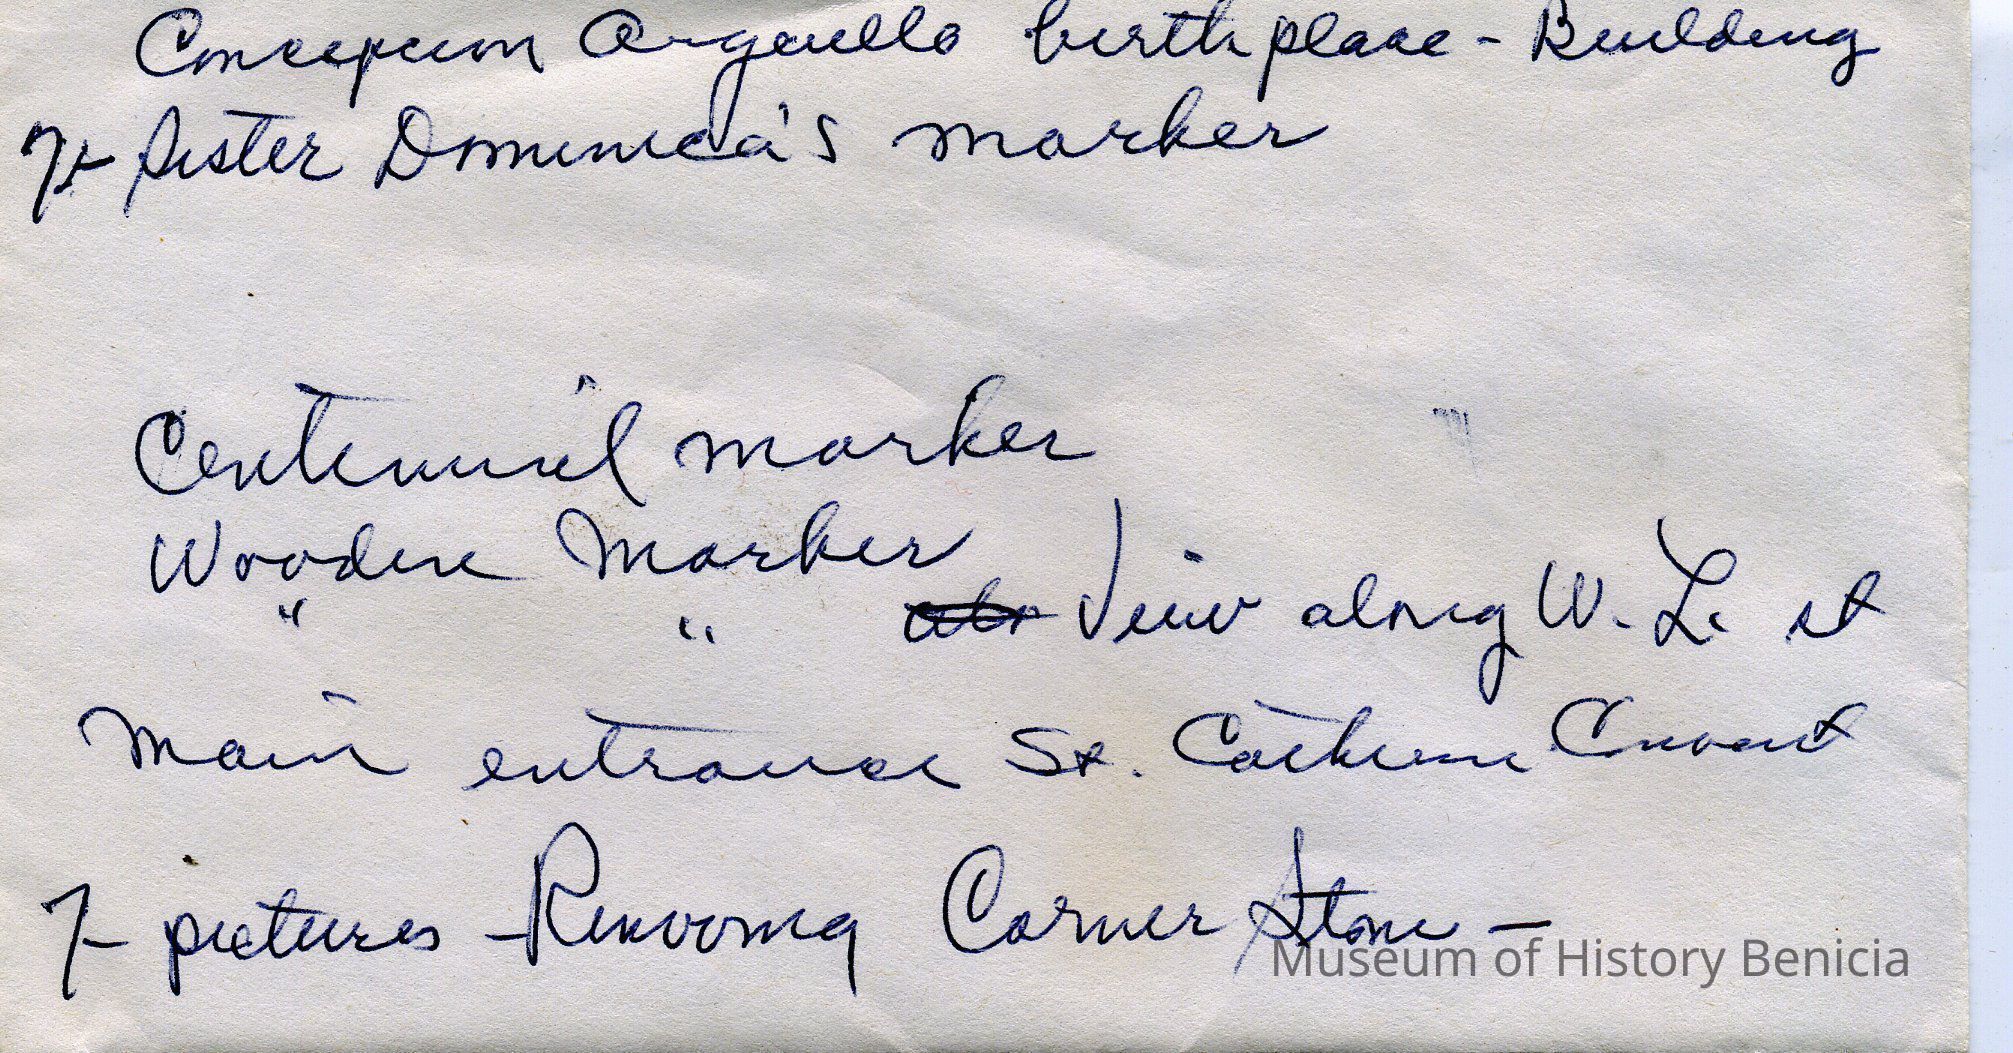 Concepcion Arguello birthplace - Building
7+ Sister Dominica's marker
Centennial marker
Wooden Marker
" " View along W. L. st
Main entrance St. Catherine Convent
7- pictures - Removing Corner Stone -
Museum of History Benicia